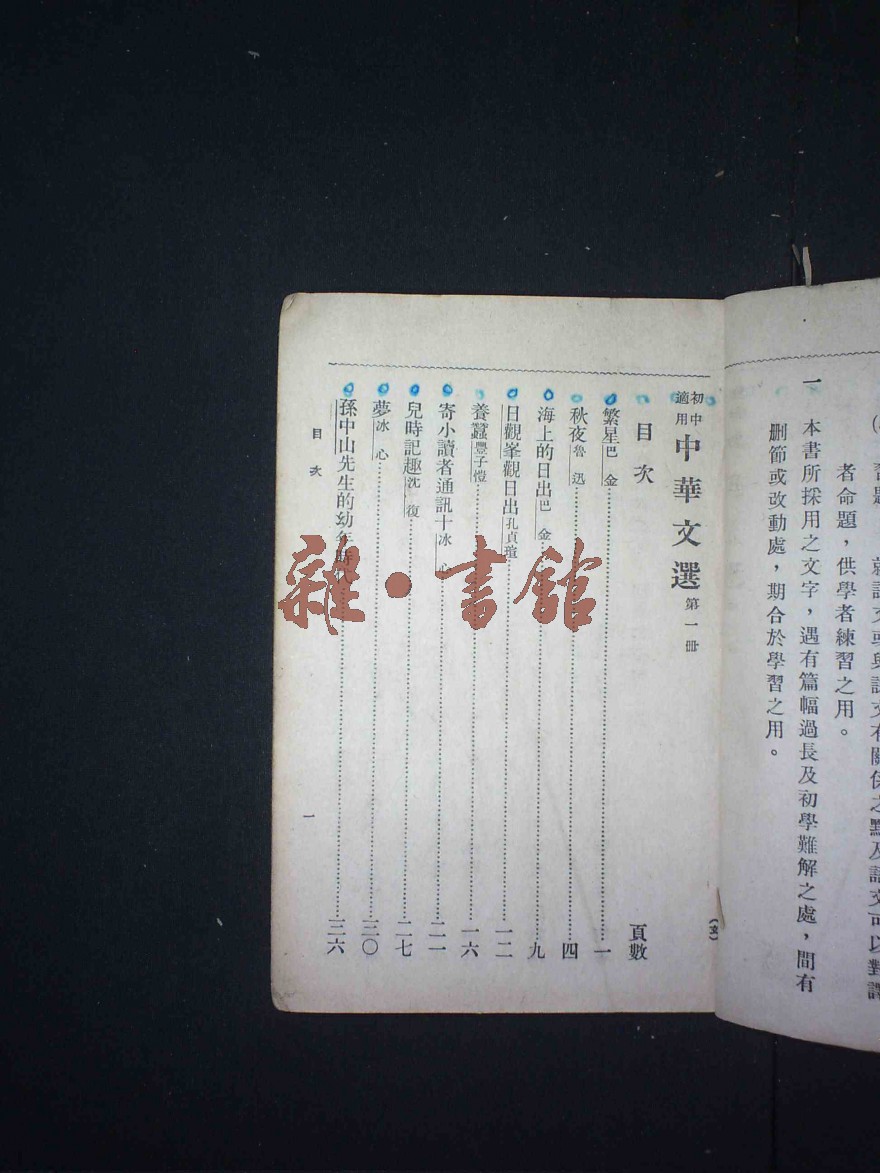 者命題，供學者練習之用。
一　本書所採用之文字，遇有篇幅過長及初學難解之處，間有
刪節或改動處，期合於學習之用。
初中適用　中華文選　第一冊
（文）
目次　頁數
繁星　巴金　一
秋夜　魯迅　四
海上的日出　巴金　九
日觀峯觀日出　孔貞瑄　一二
養蠶　豐子愷　一六
寄小讀者通訊十　冰心　二一
兒時記趣　沈復　二七
夢　冰心　三〇
孫中山先生的幼年時　三六
目次
一
雜·書館